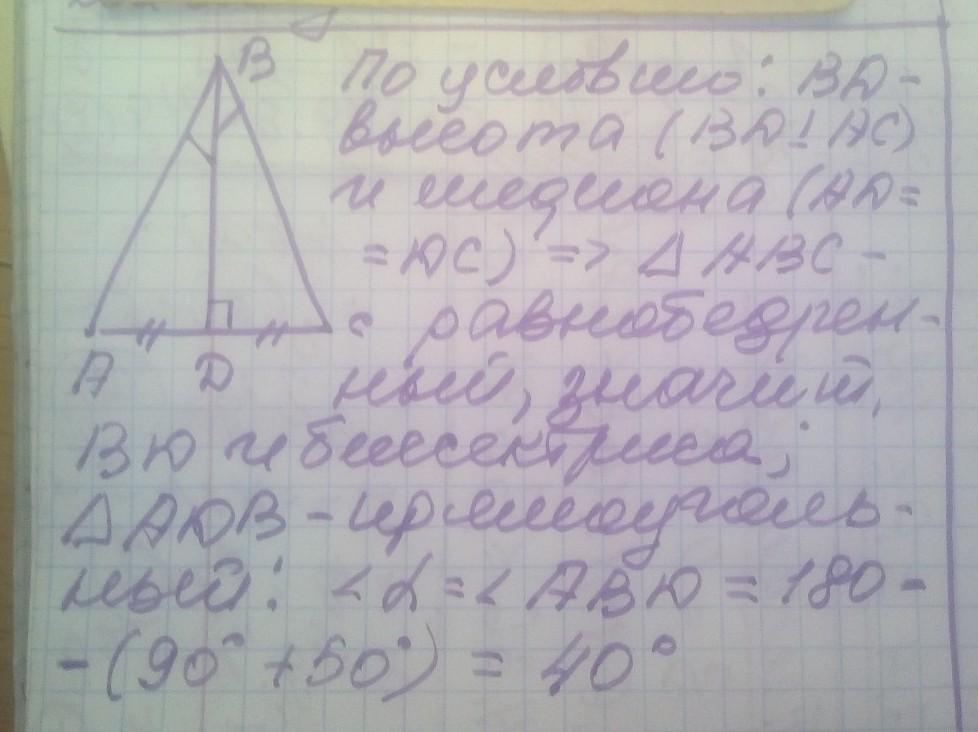 B
По условию: BD -
высота (BD⊥AC)
и медиана (AD =
= DC) => △ABC -
C равнобедрен-
A D ный, значит,
BD и биссектриса;
△ADB - прямоуголь-
ный: <α = <ABD = 180 -
- (90° + 50°) = 40°